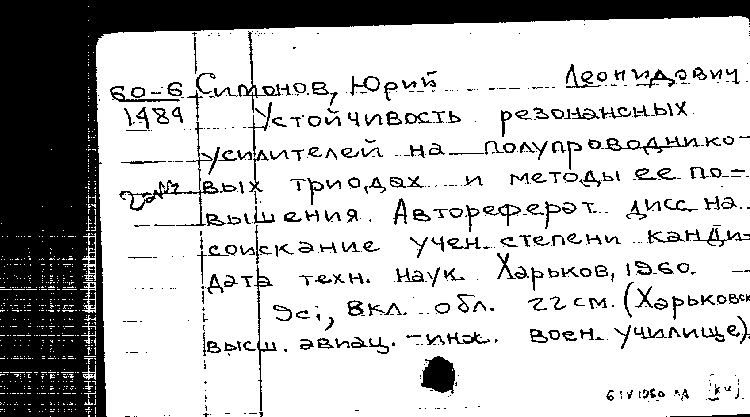 60-6 Симонов, Юрий Леонидович
1484 Устойчивость резонансных
усилителей на полупроводнико-
вых триодах и методы ее по-
вышения. Автореферат дисс. на
соискание учен. степени канди-
дата техн. наук. Харьков, 1960.
вкл. обл. 22 см. (Харьковск
высш. авиац.-инж. воен. училище).